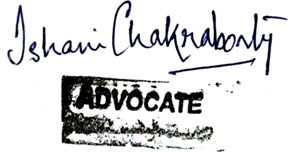 Ishani Chakraborty
ADVOCATE